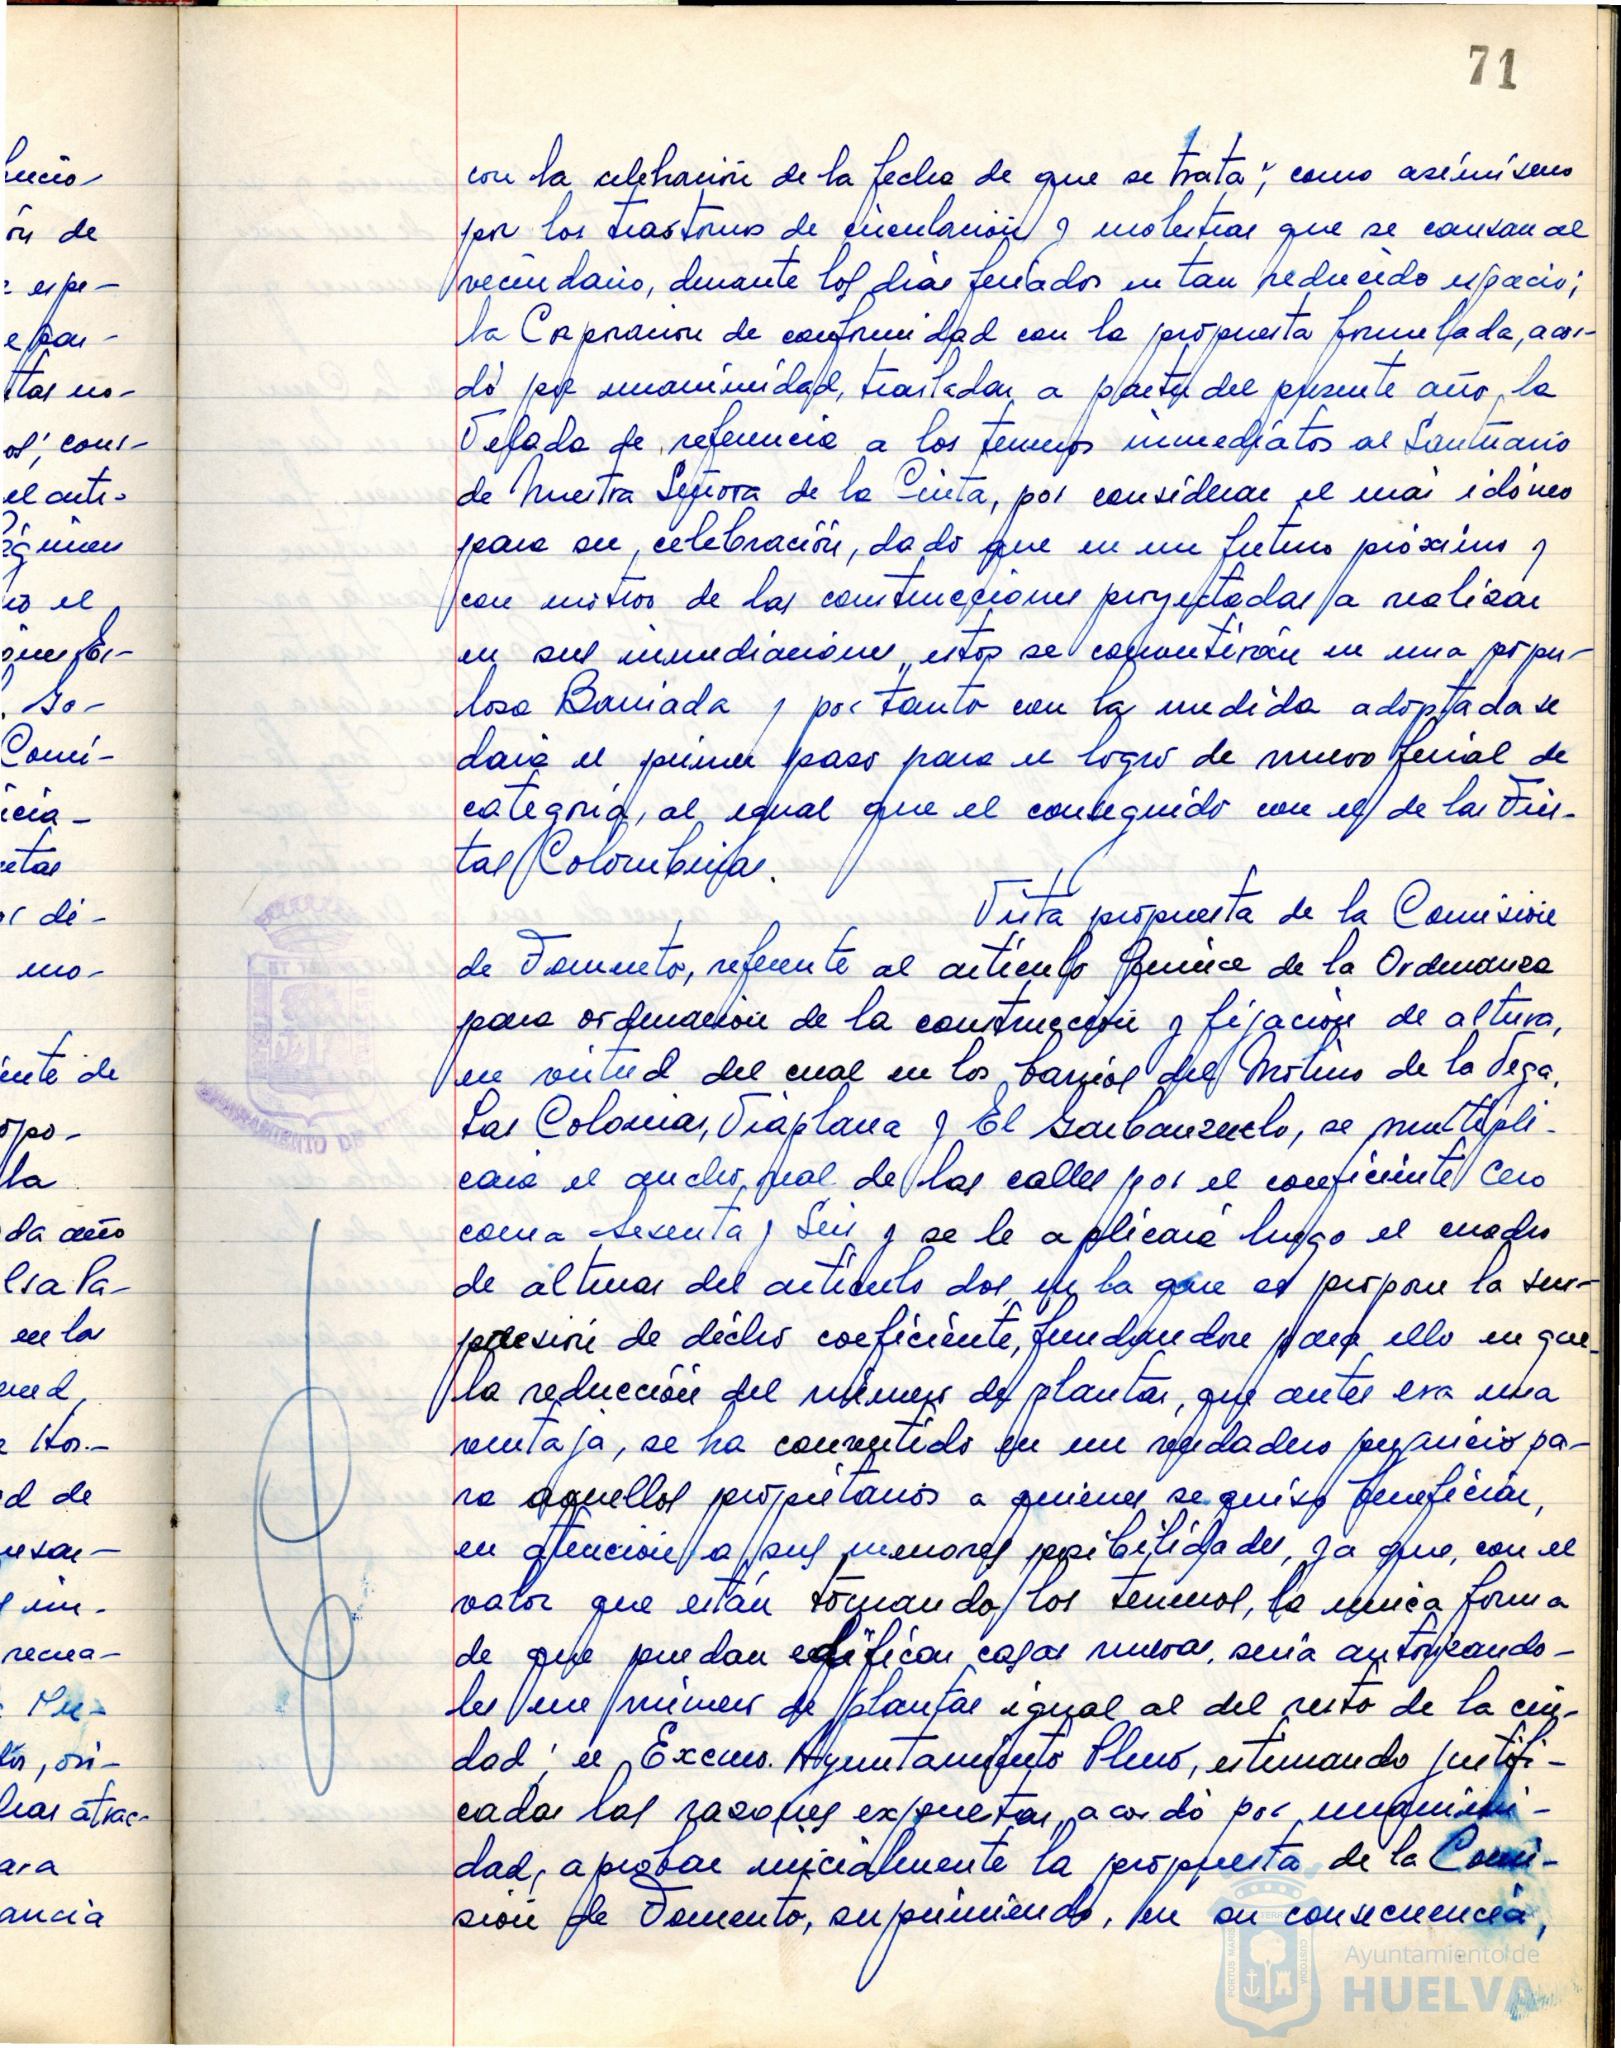 71
con la celebración de la fecha de que se trata; como asimismo
por los trastornos de circulación y molestias que se causan al
vecindario, durante los días feriados en tan reducido espacio;
la Corporación de conformidad con la propuesta formulada, acor-
dó por unanimidad, trasladar a partir del presente año, la
Velada de referencia a los terrenos inmediatos al Santuario
de Nuestra Señora de la Cinta, por considerar el más idóneo
para su celebración, dado que en un futuro próximo y
con motivo de las construcciones proyectadas a realizar
en sus inmediaciones, estos se convertirán en una popu-
losa Barriada y por tanto con la medida adoptada se
dará el primer paso para el logro de nuevo ferial de
categoría, al igual que el conseguido con el de las Fies-
tas Colombinas.
Vista propuesta de la Comisión
de Fomento, referente al artículo Quince de la Ordenanza
para ordenación de la construcción y fijación de altura,
en virtud del cual en los barrios del Molino de la Vega,
Las Colonias, Viaplana y El Garbanzuelo, se multipli-
cará el ancho real de las calles por el coeficiente Cero
coma Sesenta y Seis y se le aplicará luego el cuadro
de alturas del artículo dos, en la que se propone la su-
presión de dicho coeficiente, fundándose para ello en que
la reducción del número de plantas, que antes era una
ventaja, se ha convertido en un verdadero perjuicio pa-
ra aquellos propietarios a quienes se quiso beneficiar,
en atención a sus menores posibilidades, ya que, con el
valor que están tomando los terrenos, la única forma
de que puedan edificar casas nuevas, sería autorizando-
les un número de plantas igual al del resto de la ciu-
dad; el Excmo. Ayuntamiento Pleno, estimando justifi-
cadas las razones expuestas, acordó por unanimi-
dad, aprobar inicialmente la propuesta de la Comi-
sión de Fomento, suprimiendo, en su consecuencia,
Ayuntamiento de
HUELVA